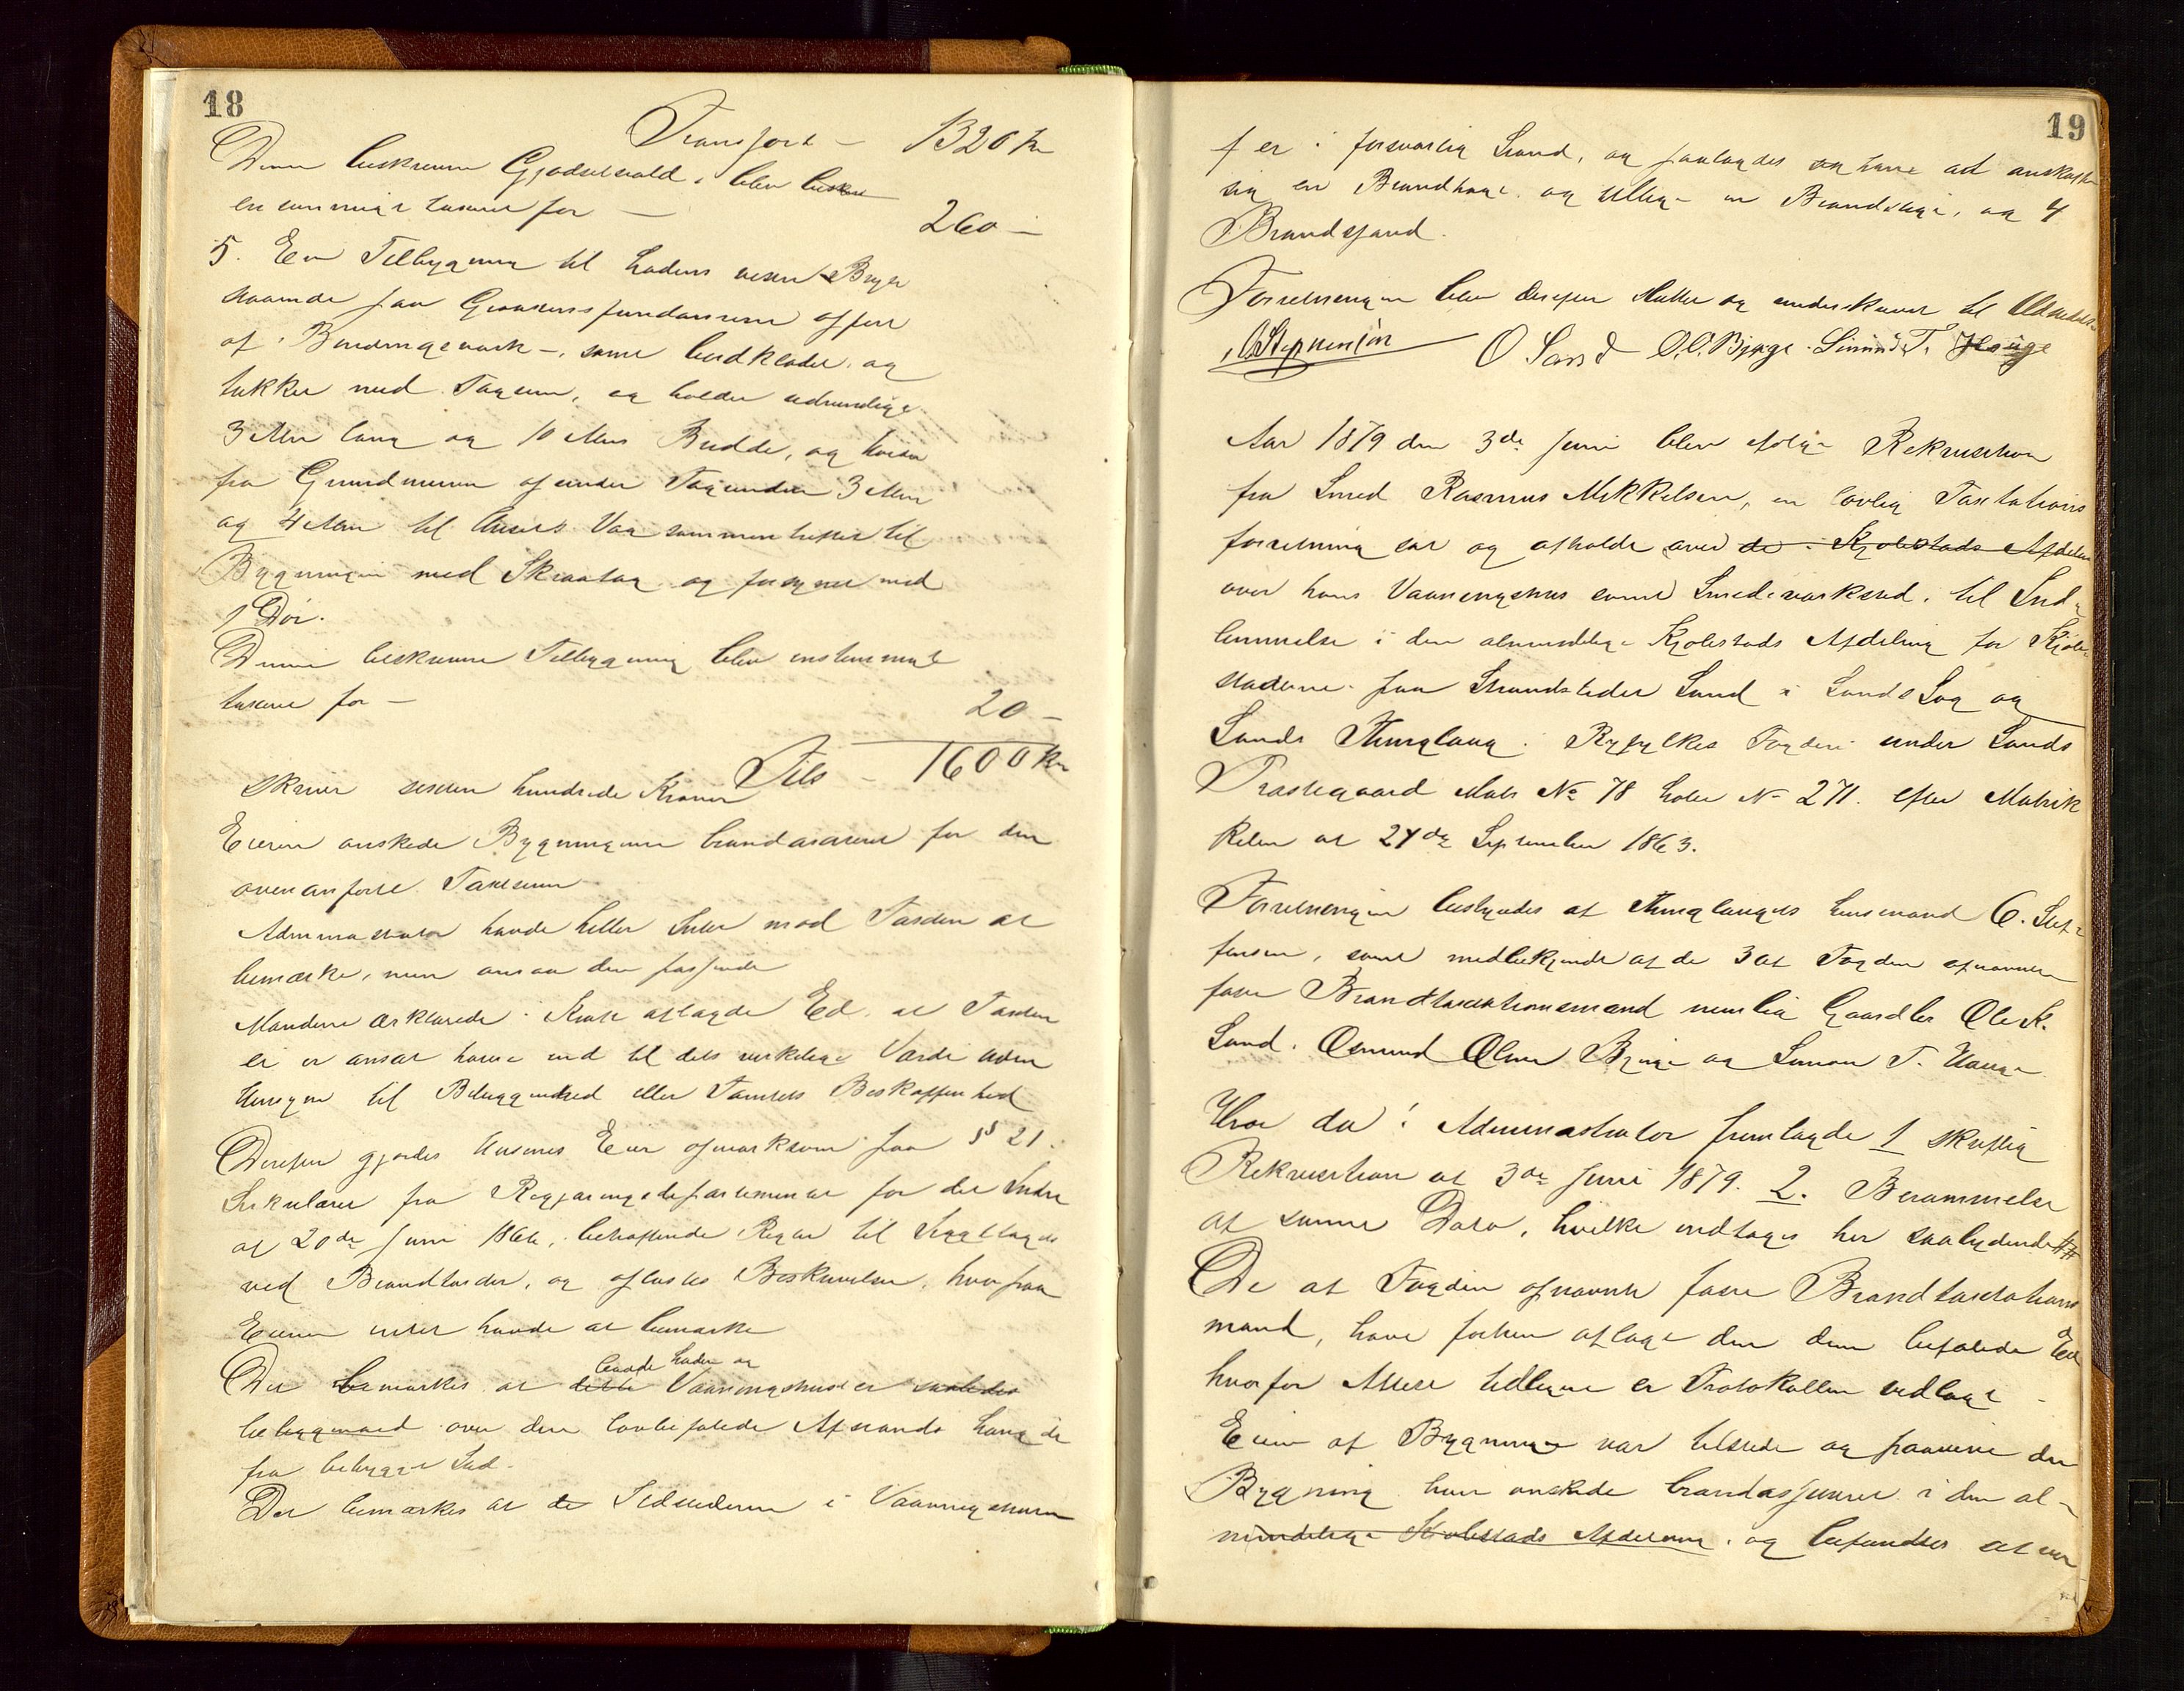 18
Transport – 1320 kr
Denne beskrevne Gjødselstald, blev
enstemmigt taxeret for – 260 –
5. En Tilbygning til Ladens
staaende paa Graasteensfundament opført
af Bindingsværk –, samt bordklædt, og
tækket med Tagsteen, og holder udvendigt
3 Alen lang og 10 Alens Bredde, og høiden
fra Grundmuren og under Tagrenden 3 Alen
og 4 Alen til Aasen Var sammenheftet til
Bygningen med Skraatag og forsynet med
1 Dør.
Denne beskrevne Tilbygning blev enstemmigt
taxeret for – 20 –
Tils – 1600 kr
skriver sexten hundrede Kroner
Eieren ønskede Bygningerne brandassureret for den
ovenanførte Taxtsum
Administrator havde heller Intet mod Taxten at
bemærke, men ansaa den passende
Mændene erklærede i Kraft aflagde Ed, at Taxten
ei er ansat høiere end til dets virkelige Værdi uden
Hensyn til Beliggenhed eller Tomtens Beskaffenhed
Derefter gjordes Husenes Eier opmærksom paa §§ 21.
Sirkulære fra Regjeringsdepartementet for det Indre
af 20de Juni 1866, betræffende Regler til Iagttagelse
ved Brandtaxter, og oplæstes Beskrivelsen, hvorpaa
Eieren intet havde at bemærke
baade Laden og
Det bemærkes at dette Vaaningshuset er saaledes
beliggende over den lovbefalede Afstands Længde
fra bebygget Sted.
Det bemærkes at de Ildstederne i Vaaningshuset
19
f er i forsvarlig Stand, og paalagdes at have at anskaffe
sig en Brandhage og tillige en Brandstige, og 4
Brandspand.
Forretningen blev derefter sluttet og underskrevet til
O Sand O. O. Bjørge. Simon T. Hauge
Aar 1879 den 3de Juni blev ifølge Rekvisition
fra Smed Rasmus Mikkelsen, en lovlig Taxtations
forretning sat og afholdt over de i Kjøbstads Afdeling
over hans Vaaningshus samt Smedeværksted, til Ind-
lemmelse i den almindelige Kjøbstads Afdeling for Kjøb-
stæderne paa Strandstedet Sand i Sands Sogn og
Sands Thinglaug i Ryfylkes Fogderi under Sands
Præstegaard Matr No 78 Løbe No 271. efter Matrik
kelen af 24de September 1863.
Forretningen bestyredes af Thinglaugets Lensmand C. Stef-
fensen, samt medbetjendt af de 3 af Fogden opnævnte
faste Brandtaxationsmænd nemlig Gaardbr Ole K.
Sand, Osmund Olsen Bjørge og Simon T. Hauge
Hvor da: Administrator fremlagde 1 skriftlig
Rekvisition af 3de Juni 1879. 2. Berammelse
af samme Dato, hvilke indtages her saalydende ##
De af Fogden opnævnte faste Brandtaxtations
mænd, have forhen aflagt den dem befalede Ed
hvorfor Attest tidligere er Protokollen vedlagt –
Eieren af Bygningen var tilstede og paaviste den
Bygning han ønskede brandassureret i den al-
mindelige Kjøbstads Afdeling, og befandtes at være